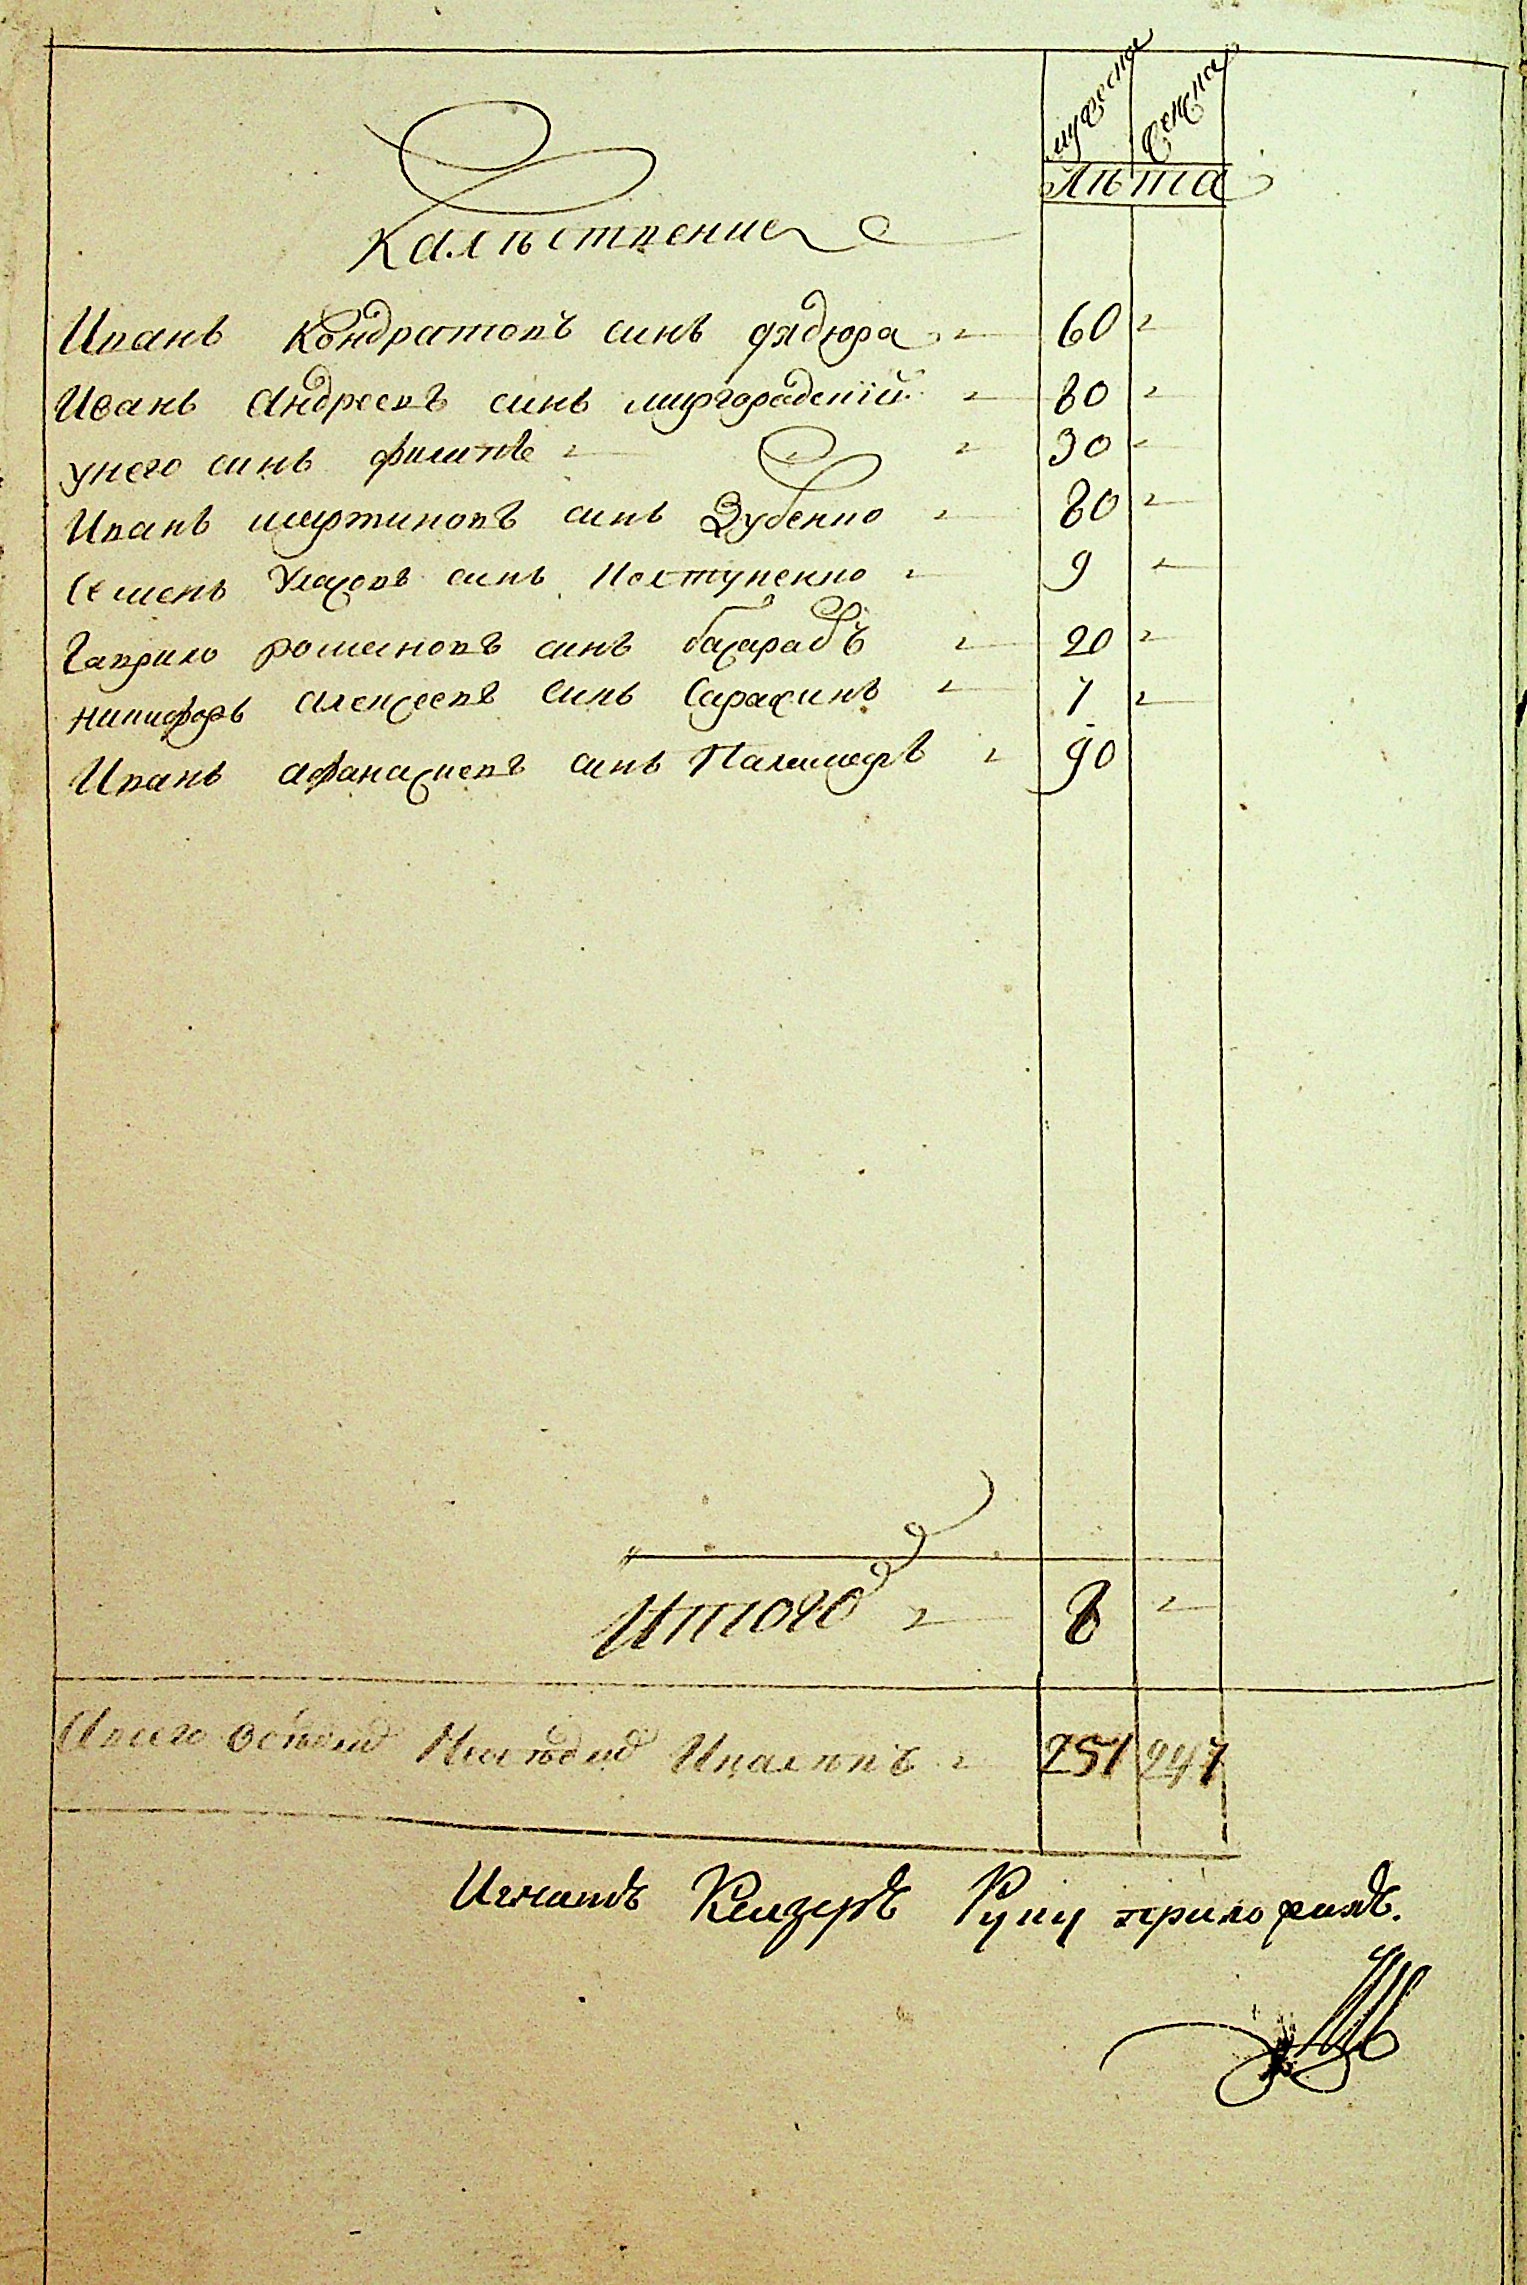 мужеска женска
лѣта
калѣственние
Иванъ Кондратовъ синъ дядюра 60
Иванъ Андреевъ синъ миргорадскій 80
унего синъ филипъ 30
Иванъ мартиновъ синъ Зубенко 80
Семенъ Уласовъ синъ 9
Гаврило романовъ синъ басарабъ 20
никифоръ алексеевъ синъ Сарахинъ 7
Иванъ афанасиевъ синъ Паламаръ 90
Итого 8
Авсего 251 247
Игнатъ Руку приложилъ.